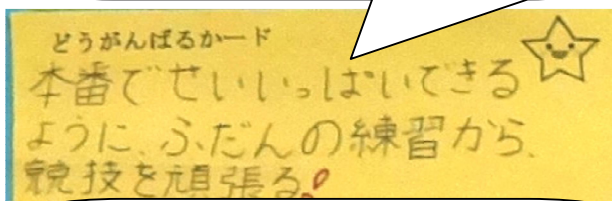 どうがんばるカード
本番でせいいっぱいできる
ように、ふだんの練習から、
競技を頑張る。